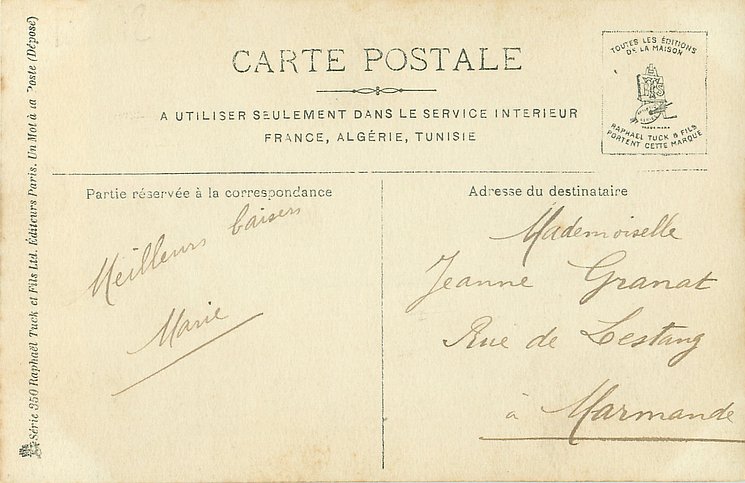 CARTE POSTALE
A UTILISER SEULEMENT DANS LE SERVICE INTERIEUR
FRANCE, ALGÉRIE, TUNISIE
TOUTES LES ÉDITIONS
DE LA MAISON
RAPHAEL TUCK & FILS
PORTENT CETTE MARQUE
TRADE MARK
Partie réservée à la correspondance
Meilleurs baisers
Marie
Adresse du destinataire
Mademoiselle
Jeanne Granat
Rue de Lestang
à Marmande
Série 950 Raphaël Tuck et Fils Ltd. Éditeurs Paris. Un Mot à la Poste (Déposé)